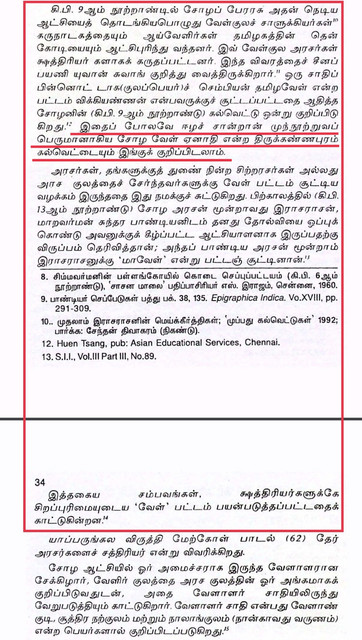 கி.பி. 9ஆம் நூற்றாண்டில் சோழப் பேரரசு அதன் நெடிய
ஆட்சியைத் தொடங்கியபொழுது வேள்குலச் சாளுக்கியர்கள்¹⁰
கருநாடகத்தையும் ஆய்வேளிர்கள் தமிழகத்தின் தென்
கோடியையும் ஆட்சிபுரிந்து வந்தனர். இவ் வேள்குல அரசர்கள்
க்ஷத்திரியர் களாகக் கருதப்பட்டனர். இந்த விவரத்தைச் சீனப்
பயணி யுவான் சுவாங் குறித்து வைத்திருக்கிறார்.¹¹ ஒரு சாதிப்
பின்னொட் டாக(குலப்பெயர்)ச் செம்பியன் தமிழவேள் என்ற
பட்டம் விக்கியண்ணன் என்பவருக்குச் சூட்டப்பட்டதை ஆதித்த
சோழனின் (கி.பி. 9ஆம் நூற்றாண்டு) கல்வெட்டு ஒன்று குறிப்பிடு
கிறது.¹² இதைப் போலவே ஈழச் சான்றான் முந்நூற்றுவப்
பெருமானாகிய சோழ வேள் ஏனாதி என்ற திருக்கண்ணபுரம்
கல்வெட்டையும் இங்குக் குறிப்பிடலாம்.
அரசர்கள், தங்களுக்குத் துணை நின்ற சிற்றரசர்கள் அல்லது
அரச குலத்தைச் சேர்ந்தவர்களுக்கு வேள் பட்டம் சூட்டிய
வழக்கம் இருந்ததை இது நமக்குச் சுட்டுகிறது. பிற்காலத்தில் (கி.பி.
13ஆம் நூற்றாண்டு) சோழ அரசன் மூன்றாவது இராசராசன்,
மாறவர்மன் சுந்தர பாண்டியனிடம் தனது தோல்வியை ஒப்புக்
கொண்டு அவனுக்குக் கீழ்ப்பட்ட ஆட்சியாளனாக இருப்பதற்கு
விருப்பம் தெரிவித்தான்; அந்தப் பாண்டிய அரசன் மூன்றாம்
இராசராசனுக்கு 'மாவேள்' என்று பட்டஞ் சூட்டினான்.¹³
8. சிம்மவர்மனின் பள்ளங்கோயில் கொடை செப்புப்பட்டயம் (கி.பி. 6ஆம்
நூற்றாண்டு), 'சாசன மாலை' பதிப்பாசிரியர் எஸ். இராஜம், சென்னை, 1960.
9. பாண்டியர் செப்பேடுகள் பத்து பக். 38, 135. Epigraphica Indica. Vo.XVIII, pp.
291-309.
10.. முதலாம் இராசராசனின் மெய்க்கீர்த்திகள்; 'முப்பது கல்வெட்டுகள்' 1992;
பார்க்க: சேந்தன் திவாகரம் (நிகண்டு).
12. Huen Tasang, pub: Asian Educational Services, Chennai.
13. S.I.I., Vol.III Part III, No.89.
34
இத்தகைய சம்பவங்கள், க்ஷத்திரியர்களுக்கே
சிறப்புரிமையுடைய 'வேள்' பட்டம் பயன்படுத்தப்பட்டதைக்
காட்டுகின்றன.¹⁴
யாப்பருங்கல விருத்தி மேற்கோள் பாடல் (62) தேர்
அரசர்களைச் சத்திரியர் என்று விவரிக்கிறது.
சோழ ஆட்சியில் ஓர் அமைச்சராக இருந்த வேளாளரான
சேக்கிழார், வேளிர் குலத்தை அரச குலத்தின் ஓர் அங்கமாகக்
குறிப்பிடுவதுடன், அதை வேளாளர் சாதியிலிருந்து
வேறுபடுத்தியும் காட்டுகிறார். வேளாளர் சாதி என்பது வேளாண்
குடி, சூத்திர நற்குலம் மற்றும் நாலாங்குலம் (நான்காவது வருணம்)
என்ற பெயர்களால் குறிப்பிடப்படுகிறது.¹⁵